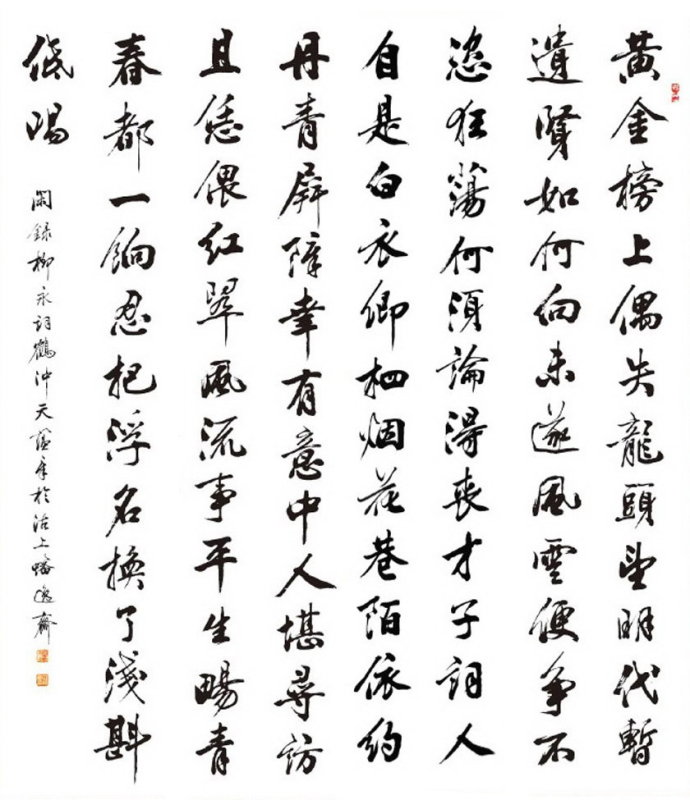 黃金榜上偶失龍頭望明代暫
遺賢如何向未遂風雲便爭不
恣狂蕩何須論得喪才子詞人
自是白衣卿相烟花巷陌依約
丹青屏障幸有意中人堪尋訪
且恁偎红翠風流事平生暢青
春都一餉忍把浮名換了淺斟
低唱
閑錄柳永詞鶴沖天於沽上逸齋